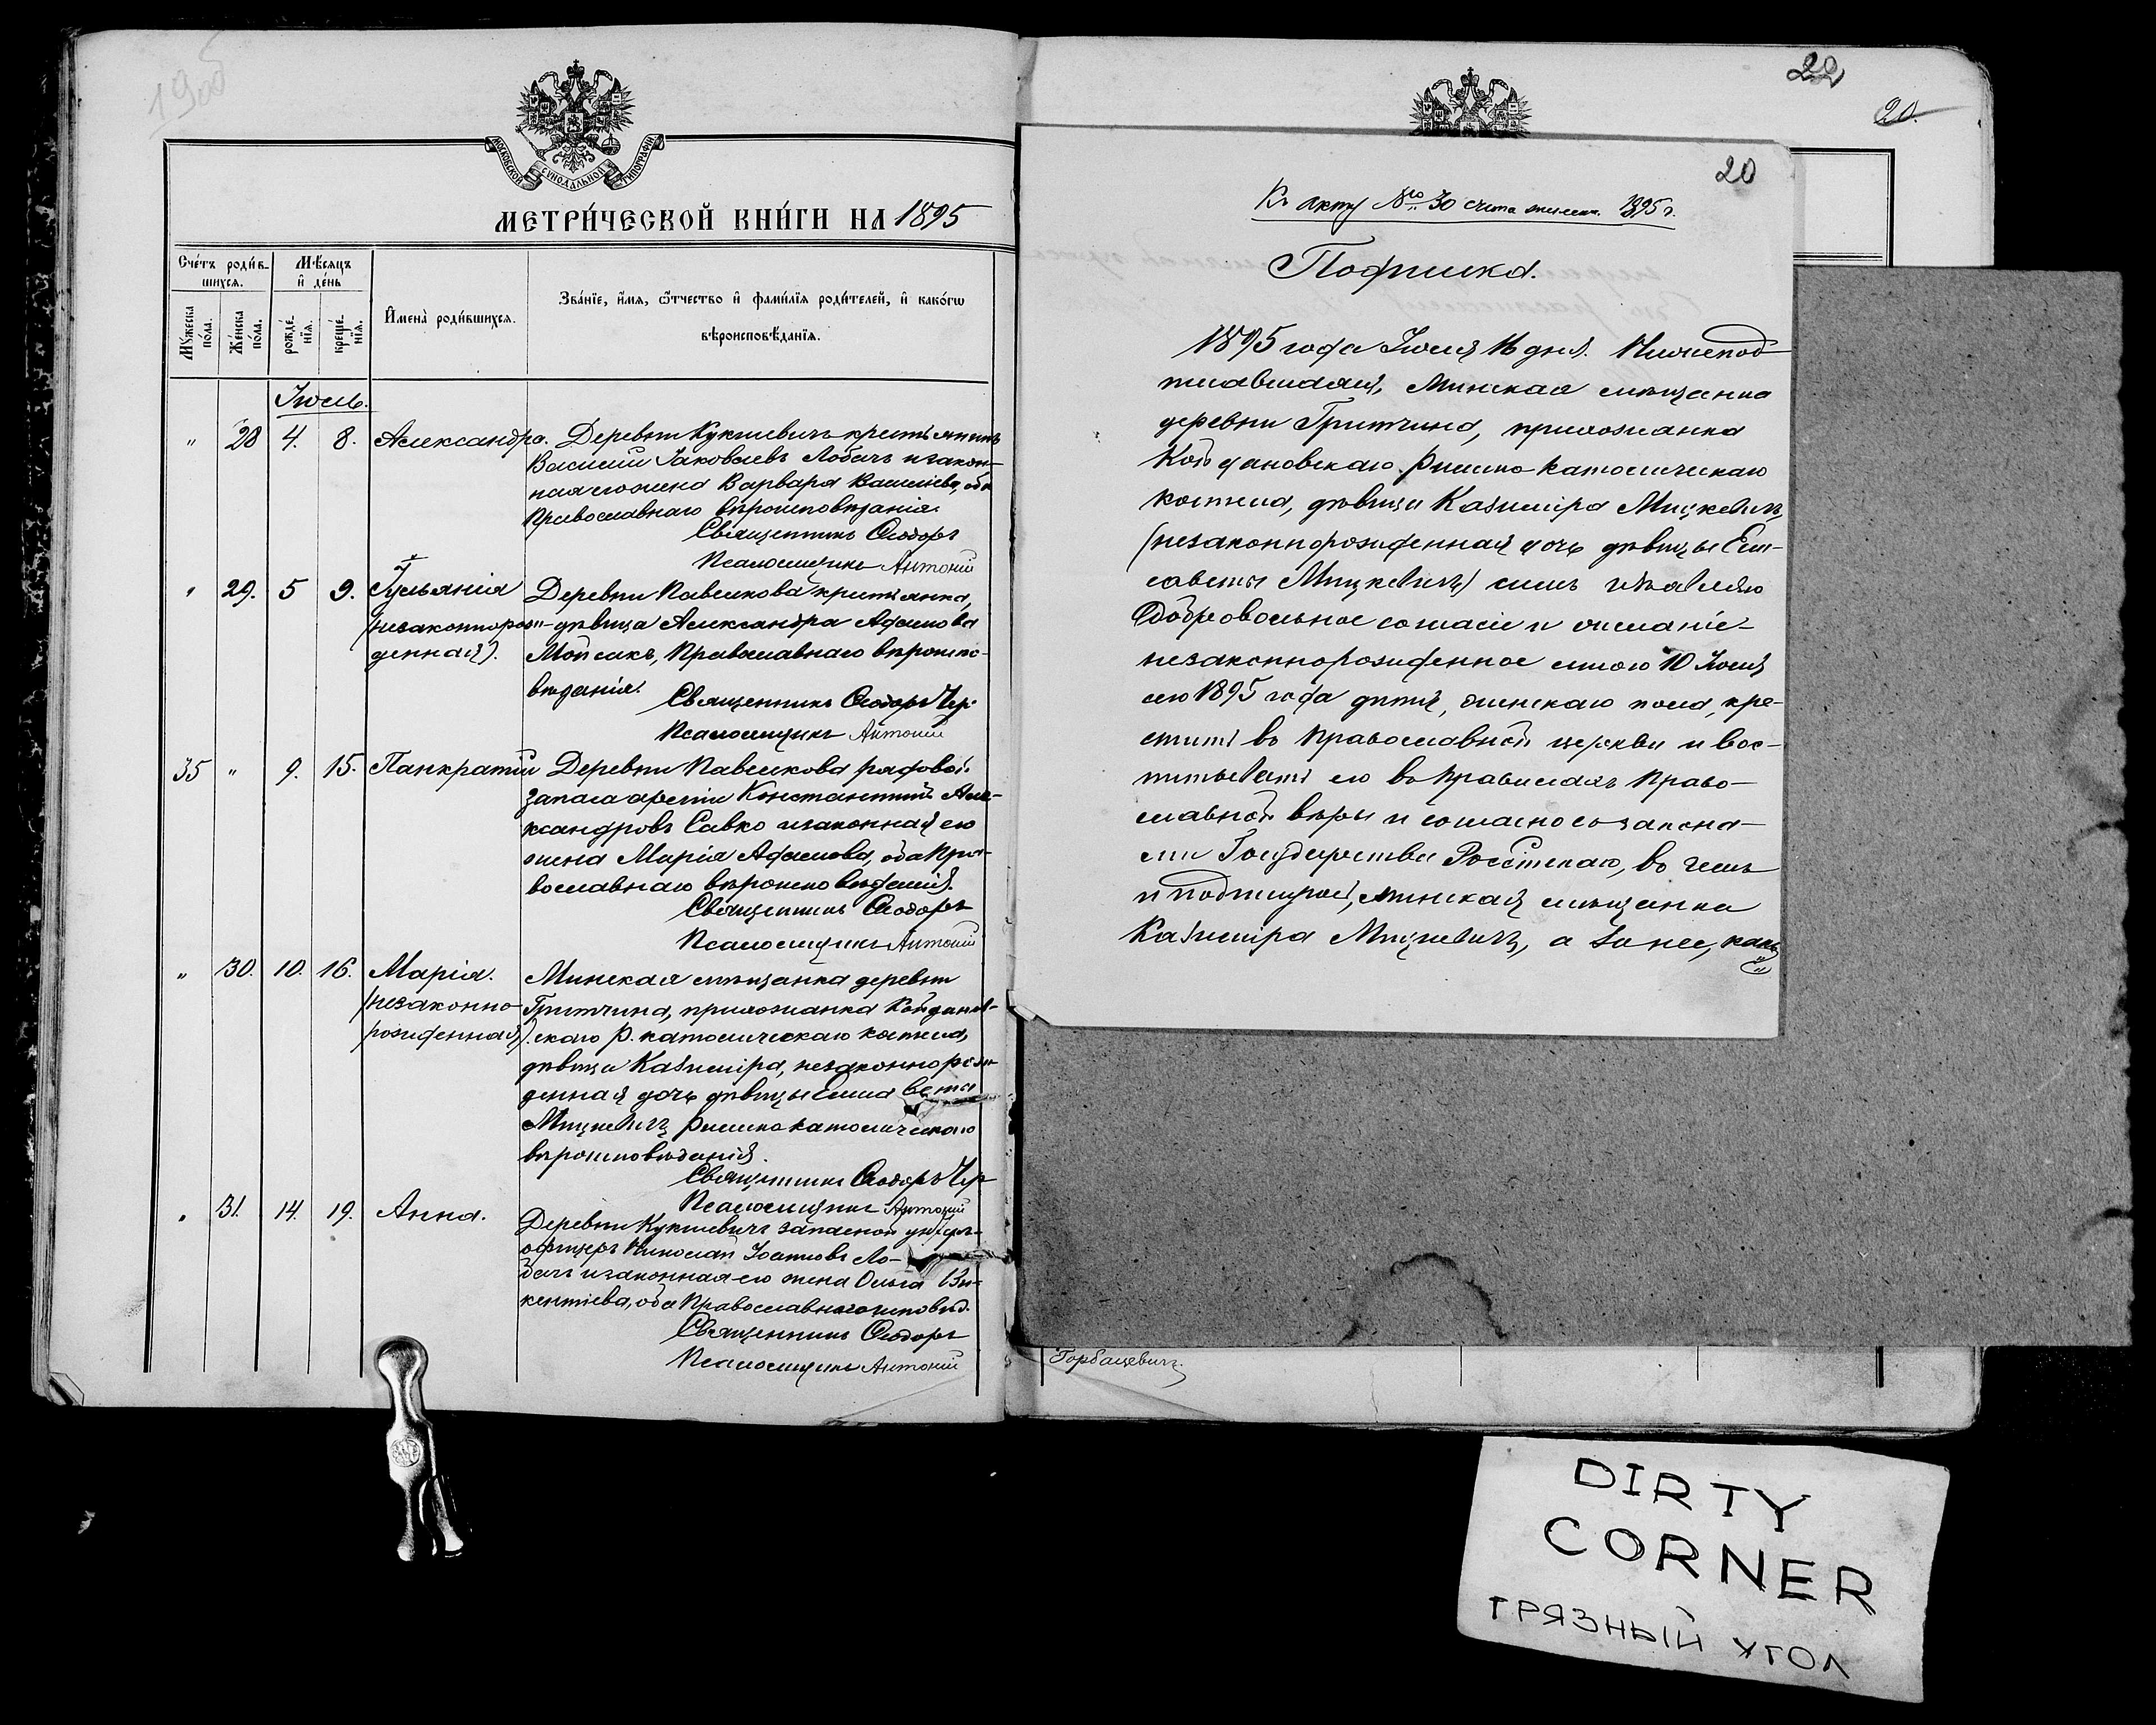 1900
МОСКОВСКОЙ СѴНОДАЛЬНОЙ ТИПОГРАФІИ
МЕТРИ́ЧЕСКОЙ КНИ́ГИ НА 1895
Сче́тъ роди́в-
шихся.
Мѣ́сяцъ
и҆ де́нь
Мꙋ́жеска
по́ла.
Же́нска
по́ла.
рожде́-
нїѧ.
креще́-
нїѧ.
И҆мена̀ роди́вшихся.
Зва́нїе, и҆́мѧ, ѻ҆́тчество и҆ фами́лїѧ роди́телей, и҆ како́гѡ
вѣроисповѣ́данїѧ.
Іюль.
" 28 4. 8. Александра. Деревни Кукшевичъ крестьянинъ
Василій Іаковлевъ Лобачъ и закон-
ная его жена Варвара Василіева, оба
Православнаго вѣроисповѣданія.
Священникъ Ѳеодоръ
Псаломщикъ Антоній
" 29. 5 9. Іульянія Деревни Павелкова крестьянка,
(незаконнорож- дѣвица Александра Адамова
денная). Мойсакъ, Православнаго вѣроиспо-
вѣданія.
Священникъ Ѳеодоръ Чер-
Псаломщикъ Антоній
35 " 9. 15. Панкратій Деревни Павелкова рядовой
запаса арміи Константинъ Але-
ксандровъ Савко и законная его
жена Марія Адамова, оба Пра-
вославнаго вѣроисповѣданія.
Священникъ Ѳеодоръ
Псаломщикъ Антоній
" 30. 10. 16. Марія. Минская мѣщанка деревни
(незаконно- Гритчина, прихожанка Койданов-
рожденная). скаго Р. католическаго костела,
дѣвица Казиміра, незаконнорож-
денная дочь дѣвицы Елисаветы
Мицкевичъ, римско католическаго
вѣроисповѣданія.
Священникъ Ѳеодоръ Чер-
Псаломщикъ Антоній
" 31. 14. 19. Анна. Деревни Кукшевичъ запасной унтеръ-
офицеръ Николай Іоанновъ Ло-
бачъ и законная его жена Ольга Ви-
кентіева, оба Православнаго исповѣд.
Священникъ Ѳеодоръ
Псаломщикъ Антоній
22
20.
20
Къ акту № 30 счета женск. 1895 г.
Подписка.
1895 года Іюля 16 дня. Нижепод-
писавшаяся, Минская мѣщанка
деревни Гритчина, прихожанка
Койдановскаго Римско-католическаго
костела, дѣвица Казиміра Мицкевичъ,
(незаконнорожденная дочь дѣвицы Ели-
саветы Мицкевичъ) симъ изъявляю
добровольное согласіе и желаніе
незаконнорожденное мною 10 Іюля
сего 1895 года дитя, женскаго пола, кре-
стить въ Православной церкви и вос-
питывать его въ правилахъ Право-
славной вѣры и согласно съ закона-
ми Государства Россійскаго, въ чемъ
и подпишусь, минская мѣщанка
Казиміра Мицкевичъ, а за нее, какъ
Горбацевичъ.
DIRTY
CORNER
ГРЯЗНЫЙ УГОЛ